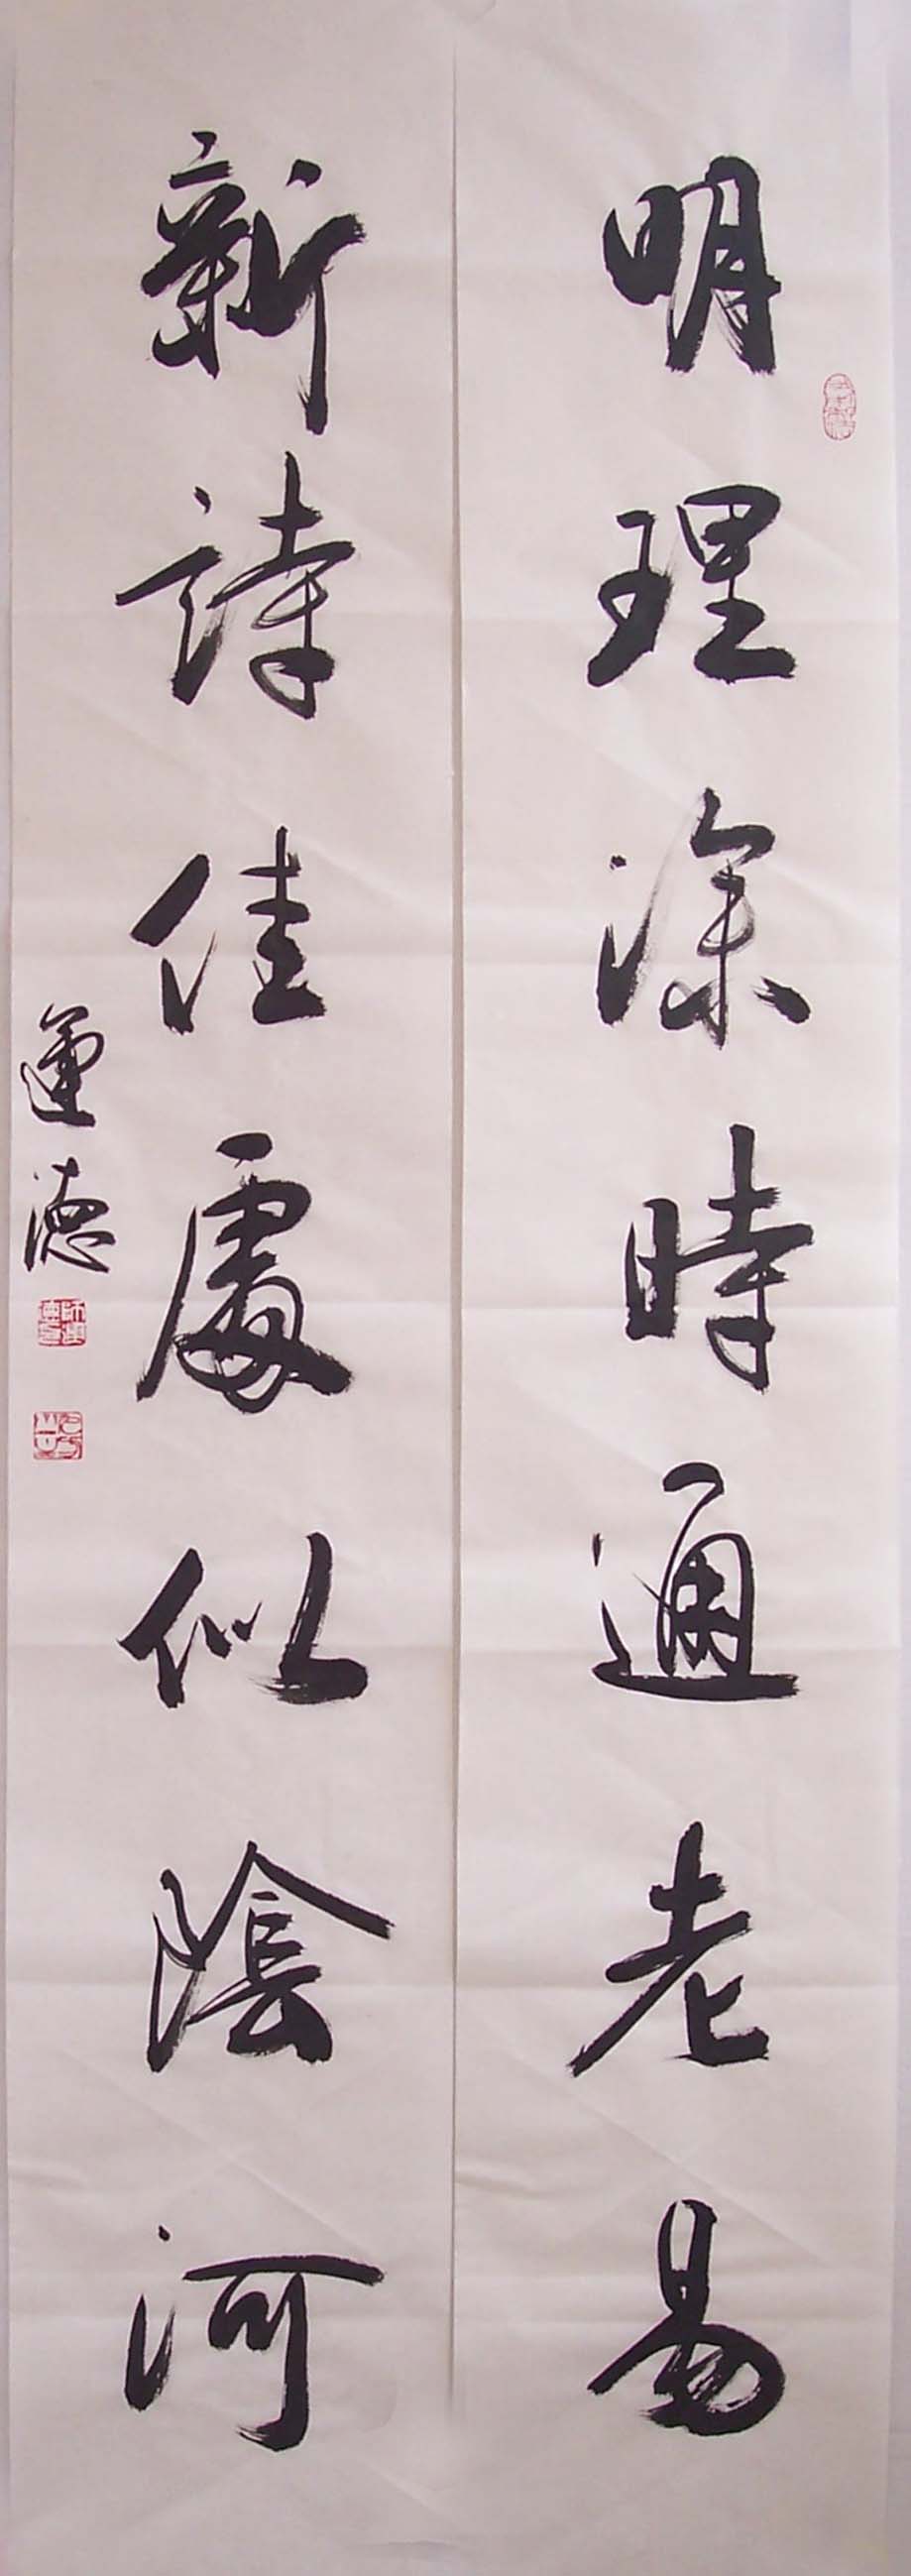 明理深時通老易
新詩佳處似陰河
運德